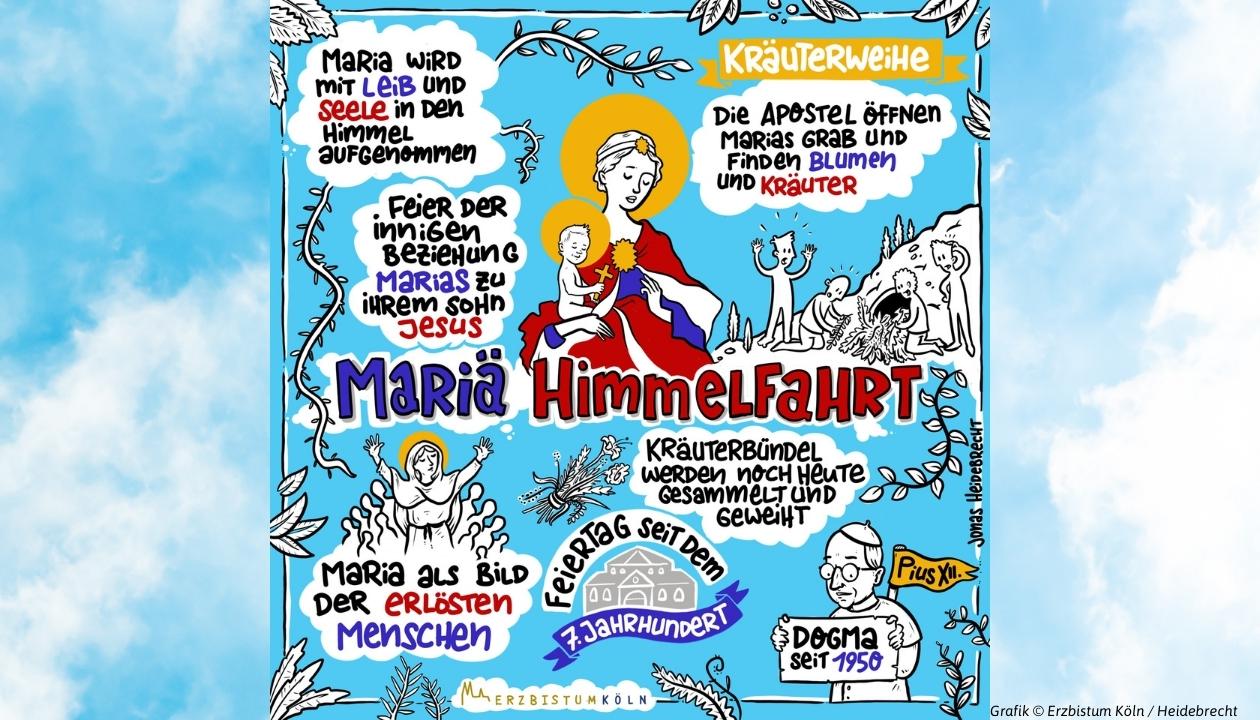 Maria wird
mit Leib und
Seele in den
Himmel
aufgenommen
Kräuterweihe
Die Apostel öffnen
Marias Grab und
finden Blumen
und Kräuter
Feier der
innigen
Beziehung
Marias zu
ihrem Sohn
Jesus
Mariä Himmelfahrt
Kräuterbündel
werden noch heute
gesammelt und
geweiht
Maria als Bild
der erlösten
Menschen
Feiertag seit dem
7. Jahrhundert
Pius XII.
Dogma
seit 1950
Jonas Heidebrecht
ERZBISTUMKÖLN
Grafik © Erzbistum Köln / Heidebrecht